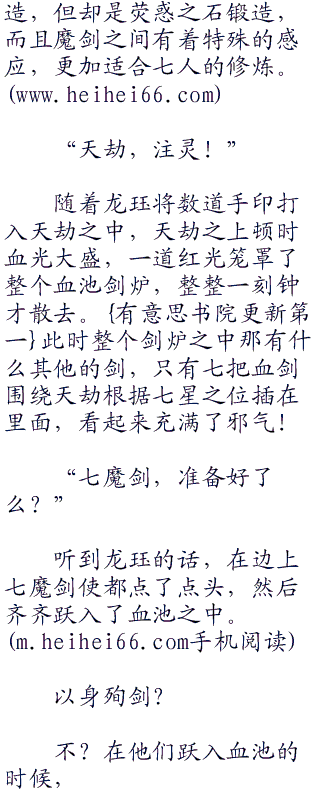 造，但却是荧惑之石锻造，
而且魔剑之间有着特殊的感
应，更加适合七人的修炼。
(www.heihei66.com)
“天劫，注灵！”
随着龙珏将数道手印打
入天劫之中，天劫之上顿时
血光大盛，一道红光笼罩了
整个血池剑炉，整整一刻钟
才散去。{有意思书院更新第
一}此时整个剑炉之中那有什
么其他的剑，只有七把血剑
围绕天劫根据七星之位插在
里面，看起来充满了邪气！
“七魔剑，准备好了
么？”
听到龙珏的话，在边上
七魔剑使都点了点头，然后
齐齐跃入了血池之中。
(m.heihei66.com手机阅读)
以身殉剑？
不？在他们跃入血池的
时候，